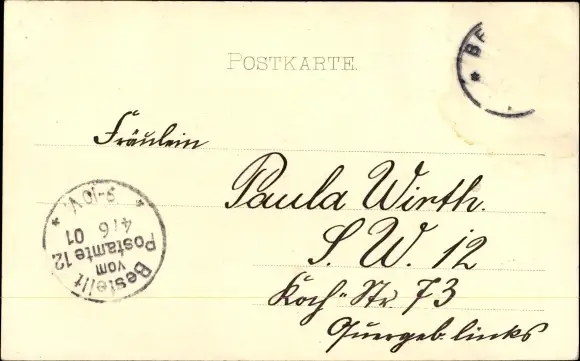 POSTKARTE.
BE
*
Fräulein
Paula Wirth.
S. W. 12
Koch-Str. 73
Quergeb. links
Bestellt
vom
Postamte 12
4/6 01
* 9-10 V. *